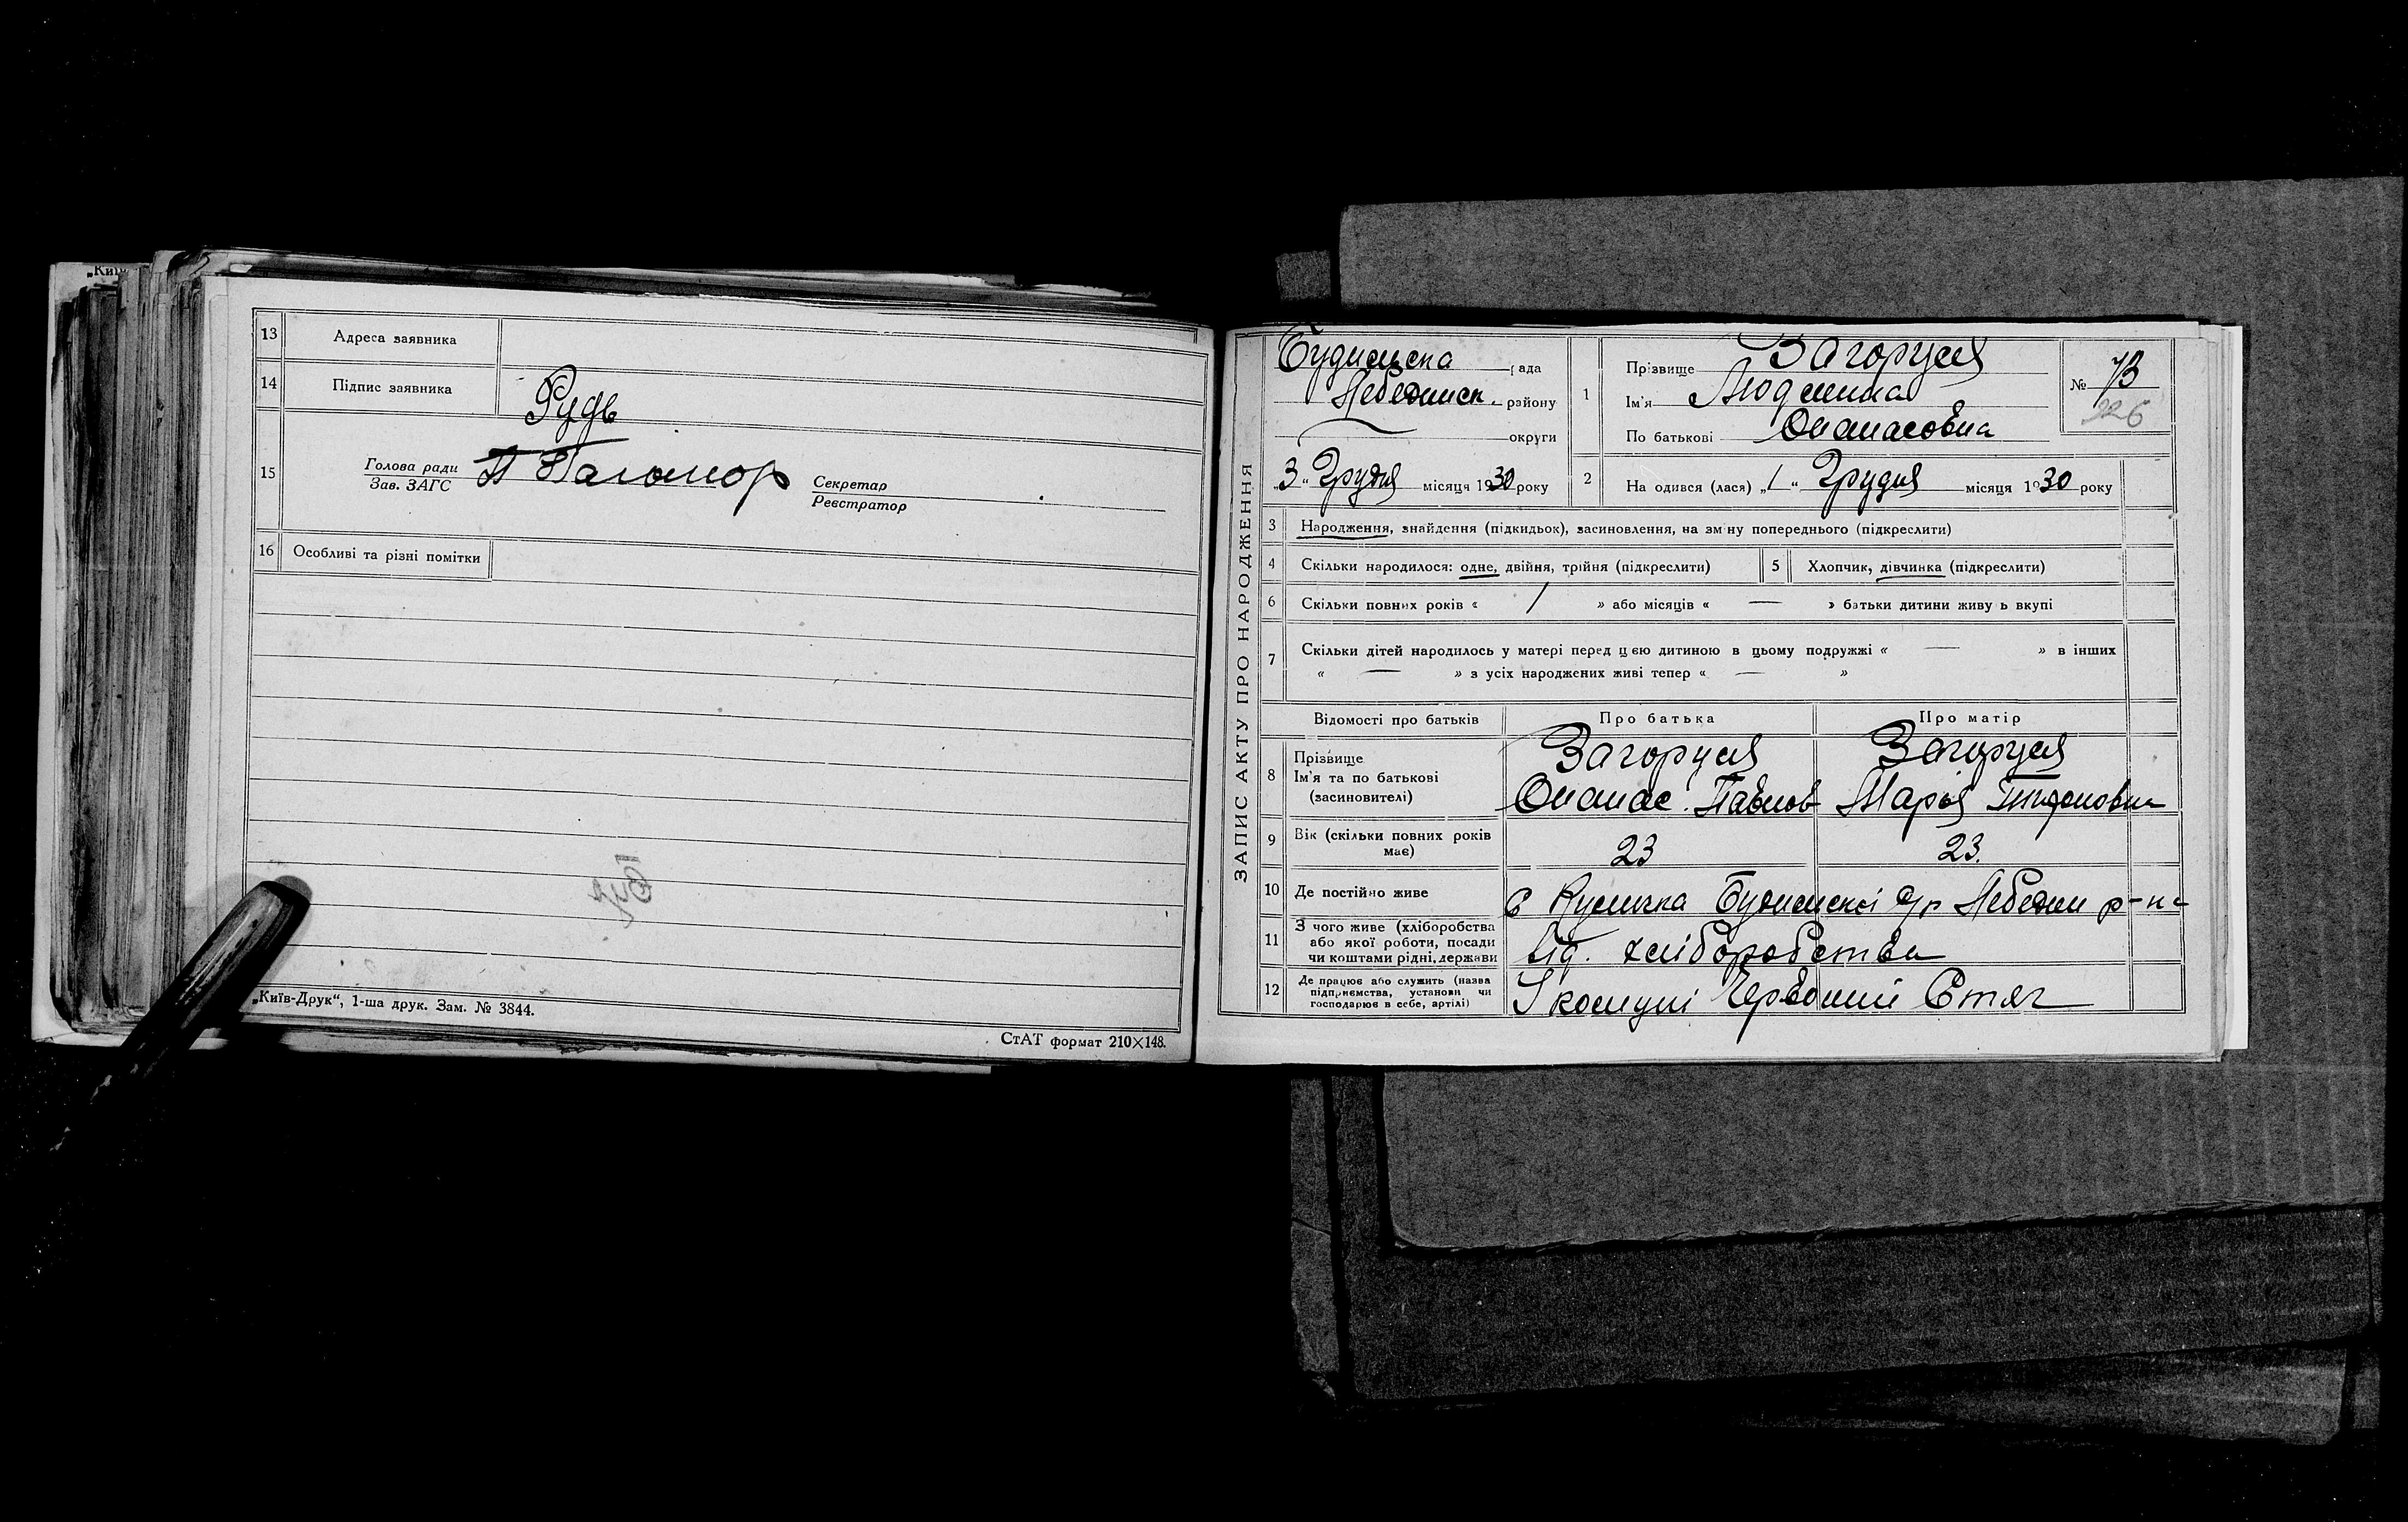 „Київ
13 Адреса заявника
14 Підпис заявника Рудь
15 Голова ради
Зав. ЗАГС
Секретар
Реєстратор
16 Особливі та різні помітки
„Київ-Друк“, 1-ша друк. Зам. № 3844.
СтАТ формат 210×148.
ЗАПИС АКТУ ПРО НАРОДЖЕННЯ
Будилська рада
Лебединск. району
округи
3 „ Грудня місяця 1930 року
1 Прізвище Загоруля
Ім'я Людмила
По батькові Опанасовна
№ 73
226
2 На одився (лася) „1 “ Грудня місяця 1930 року
3 Народження, знайдення (підкидьок), засиновлення, на зміну попереднього (підкреслити)
4 Скільки народилося: одне, двійня, трійня (підкреслити)
5 Хлопчик, дівчинка (підкреслити)
6 Скільки повних років « / » або місяців « — » батьки дитини живу ь вкупі
7 Скільки дітей народилось у матері перед цією дитиною в цьому подружжі « — » в інших
« — » з усіх народжених живі тепер « — »
Відомості про батьків Про батька Про матір
8 Прізвище
Ім'я та по батькові
(засиновителі)
Загоруля
Опанас Павлов
Загоруля
Марія
9 Вік (скільки повних років
має)
23 23.
10 Де постійно живе
с Кулички Будилської с/р Лебедин р-на
11 З чого живе (хліборобства
або якої роботи, посади
чи коштами рідні, держави
Від. хліборобства
12 Де працює або служить (назва
підприємства, установи чи
господарює в себе, артілі)
У комуні Червоний Стяг